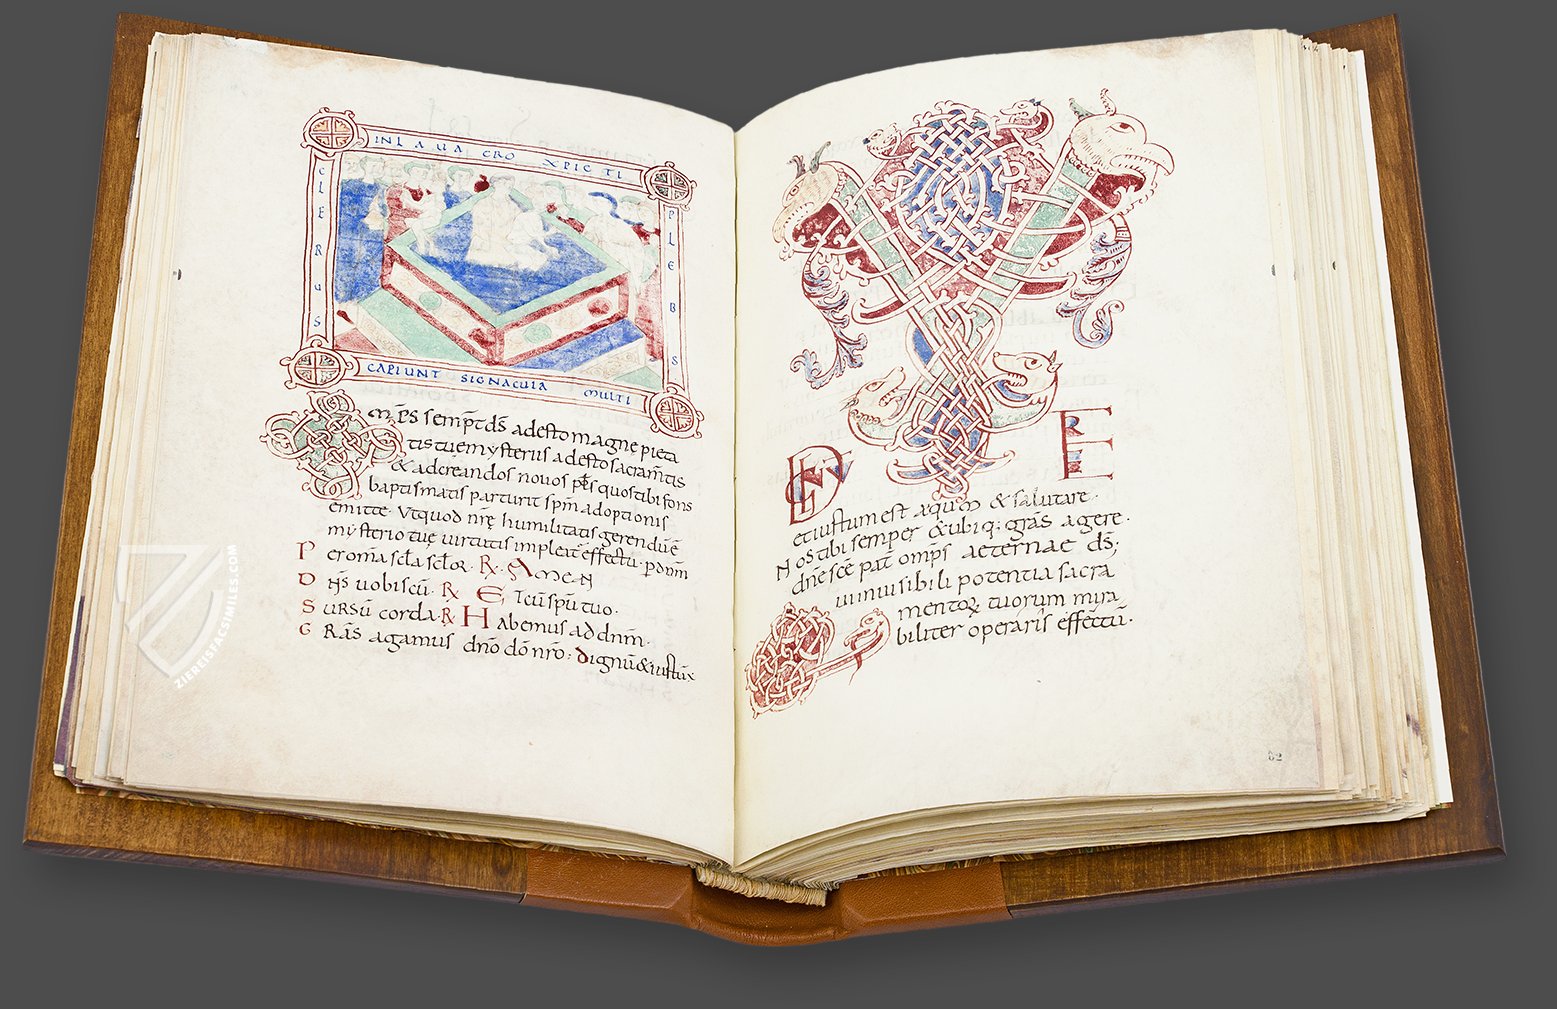 INLAVACRO XPICTI
CLERUS
PLEBS
CAPIUNT SIGNACULA MULTI
Omps sempt ds adesto magnę pieta
tis tuę mysteriis adesto sacramtis
& adcreandos novos ppls quos tibi fons
baptismatis parturit spm adoptionis
emitte. Ut quod nrę humilitatis gerendu ē
mysterio tuę virtutis impleat effectu. p dnm
Per oma scla sclor. R. Amen
Dns vobiscu. R. Et cu spu tuo.
Sursu corda. R Habemus ad dnm.
Gras agamus dno do nro. dignu & iustu
VERE
DIGNV
et iustum est aequm & salutare.
Nos tibi semper & ubiq; gras agere.
dne sce pat omps aeternae ds;
Qui invisibili potentia sacra
mentoR tuorum mira
biliter operaris effectu.
62
ZIEREISFACSIMILES.COM